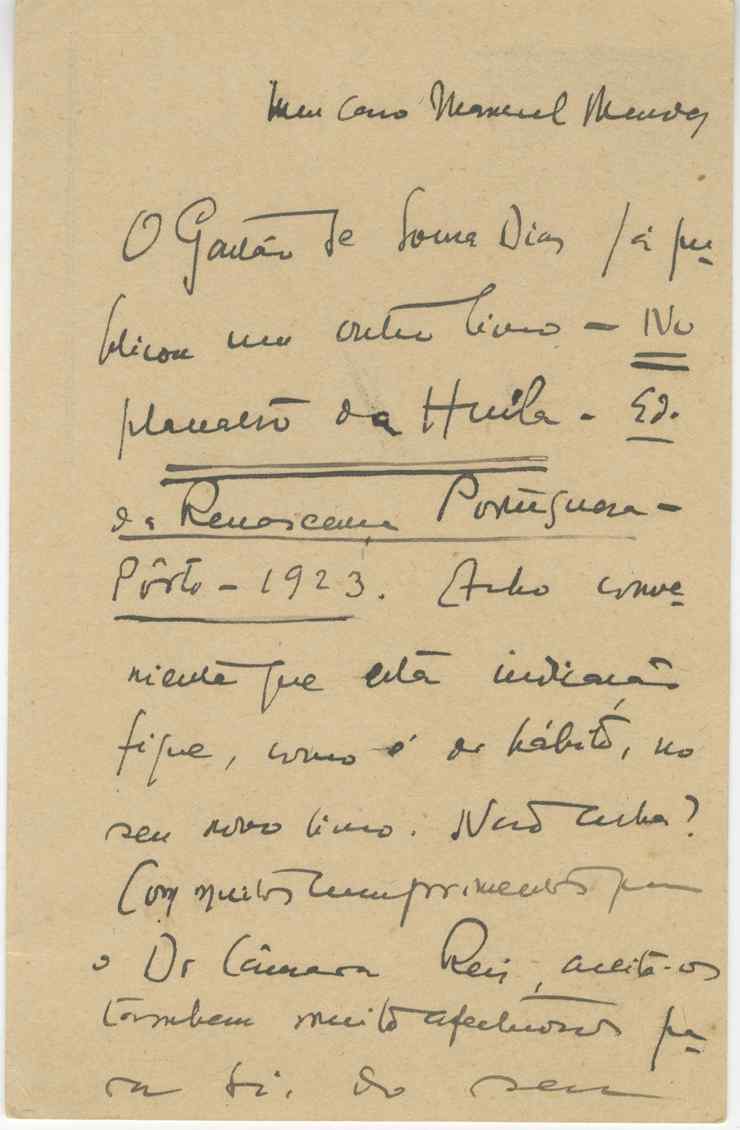 Meu caro Manuel Mendes
O Gastão de Sousa Dias já pu-
blicou um outro livro - No
planalto da Huíla - Ed.
da Renascença Portuguesa -
Pôrto - 1923. Acho conve-
niente que esta indicação
fique, como é de hábito, no
seu novo livro. Não acha?
Com muitos cumprimentos para
o Dr Câmara Reis, aceite-os
tambem muito afectuosos pa-
ra si, do seu